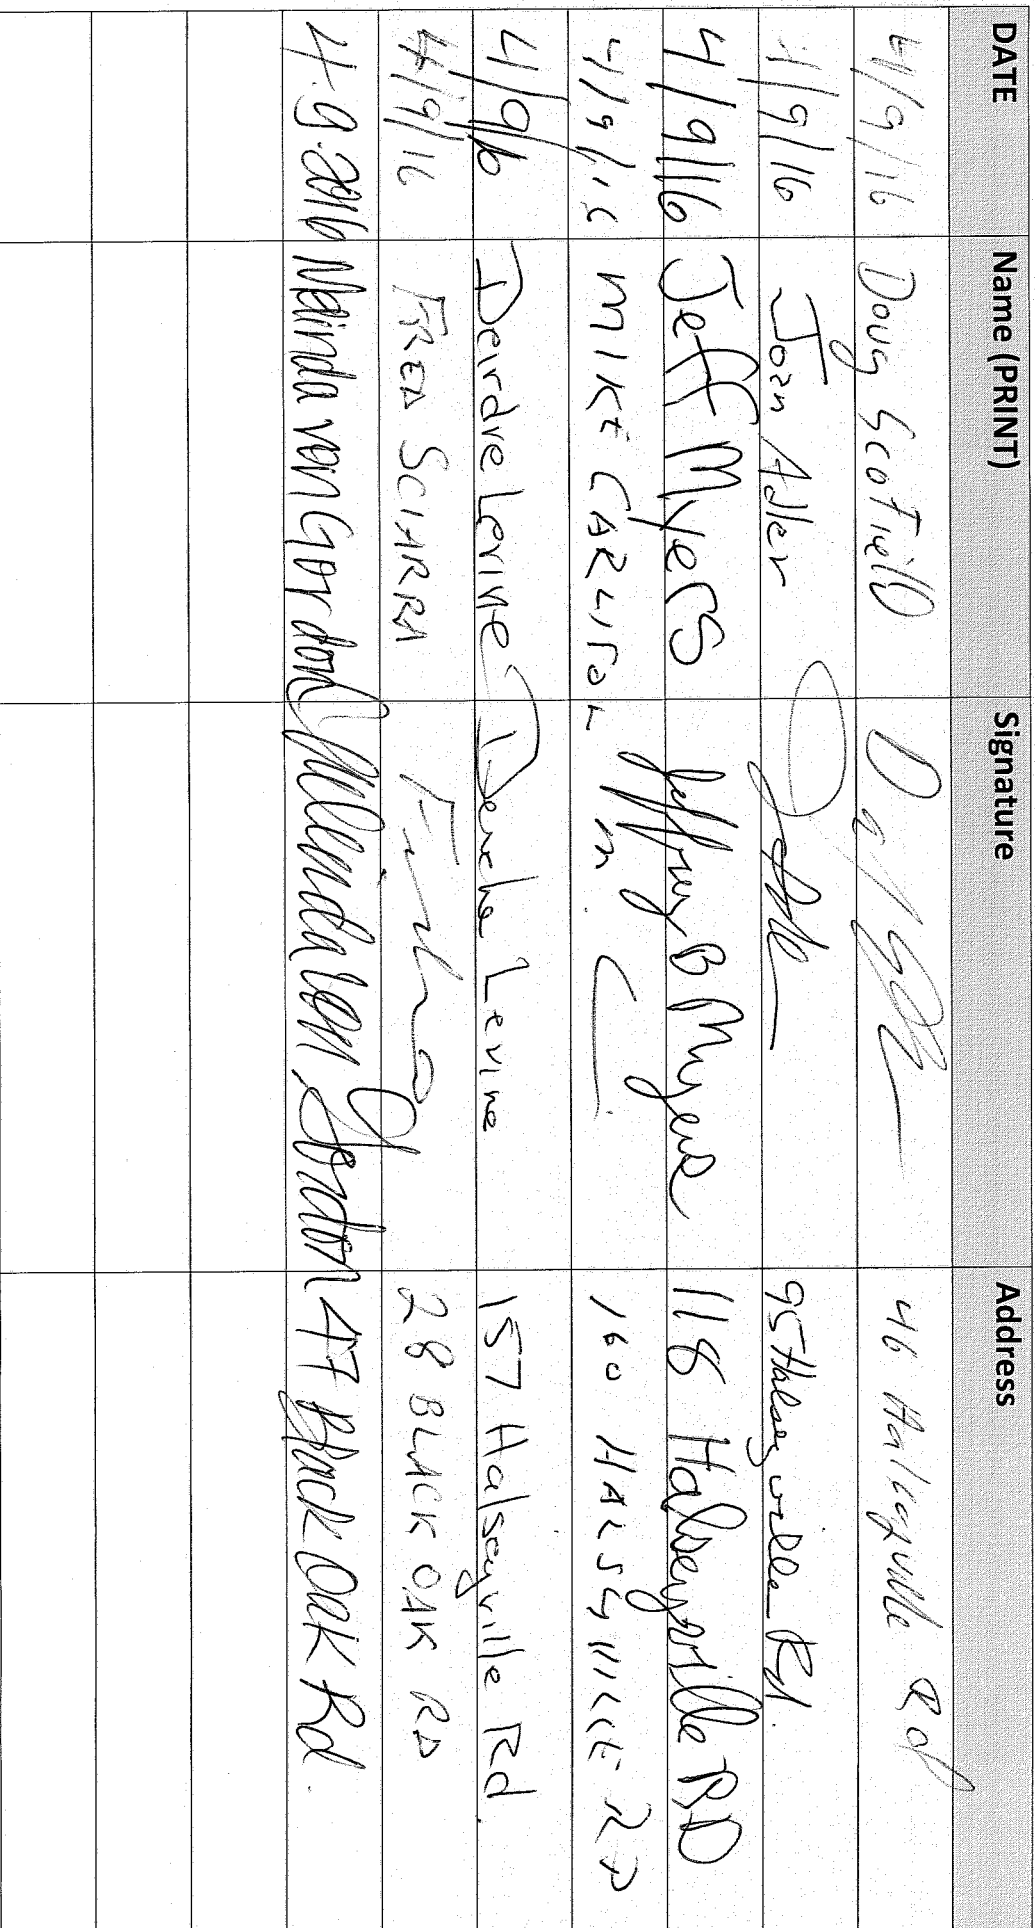 DATE Name (PRINT) Signature Address
4/9/16 Doug Scofield 46 Halseyville Rd
4/9/16 Joan Adler 95 Halseyville Rd.
4/9/16 Jeff Myers Jeffrey B Myers 118 Halseyville RD
4/9/16 MIKE CARLISON M. C 160 HALSEYVILLE RD
4/9/16 Deirdre Levine Deirdre Levine 157 Halseyville Rd.
4/9/16 FRED SCIARRA 28 BLACK OAK RD
4.9.2016 Melinda von Gordon Melinda von Gordon 47 Black Oak Rd.